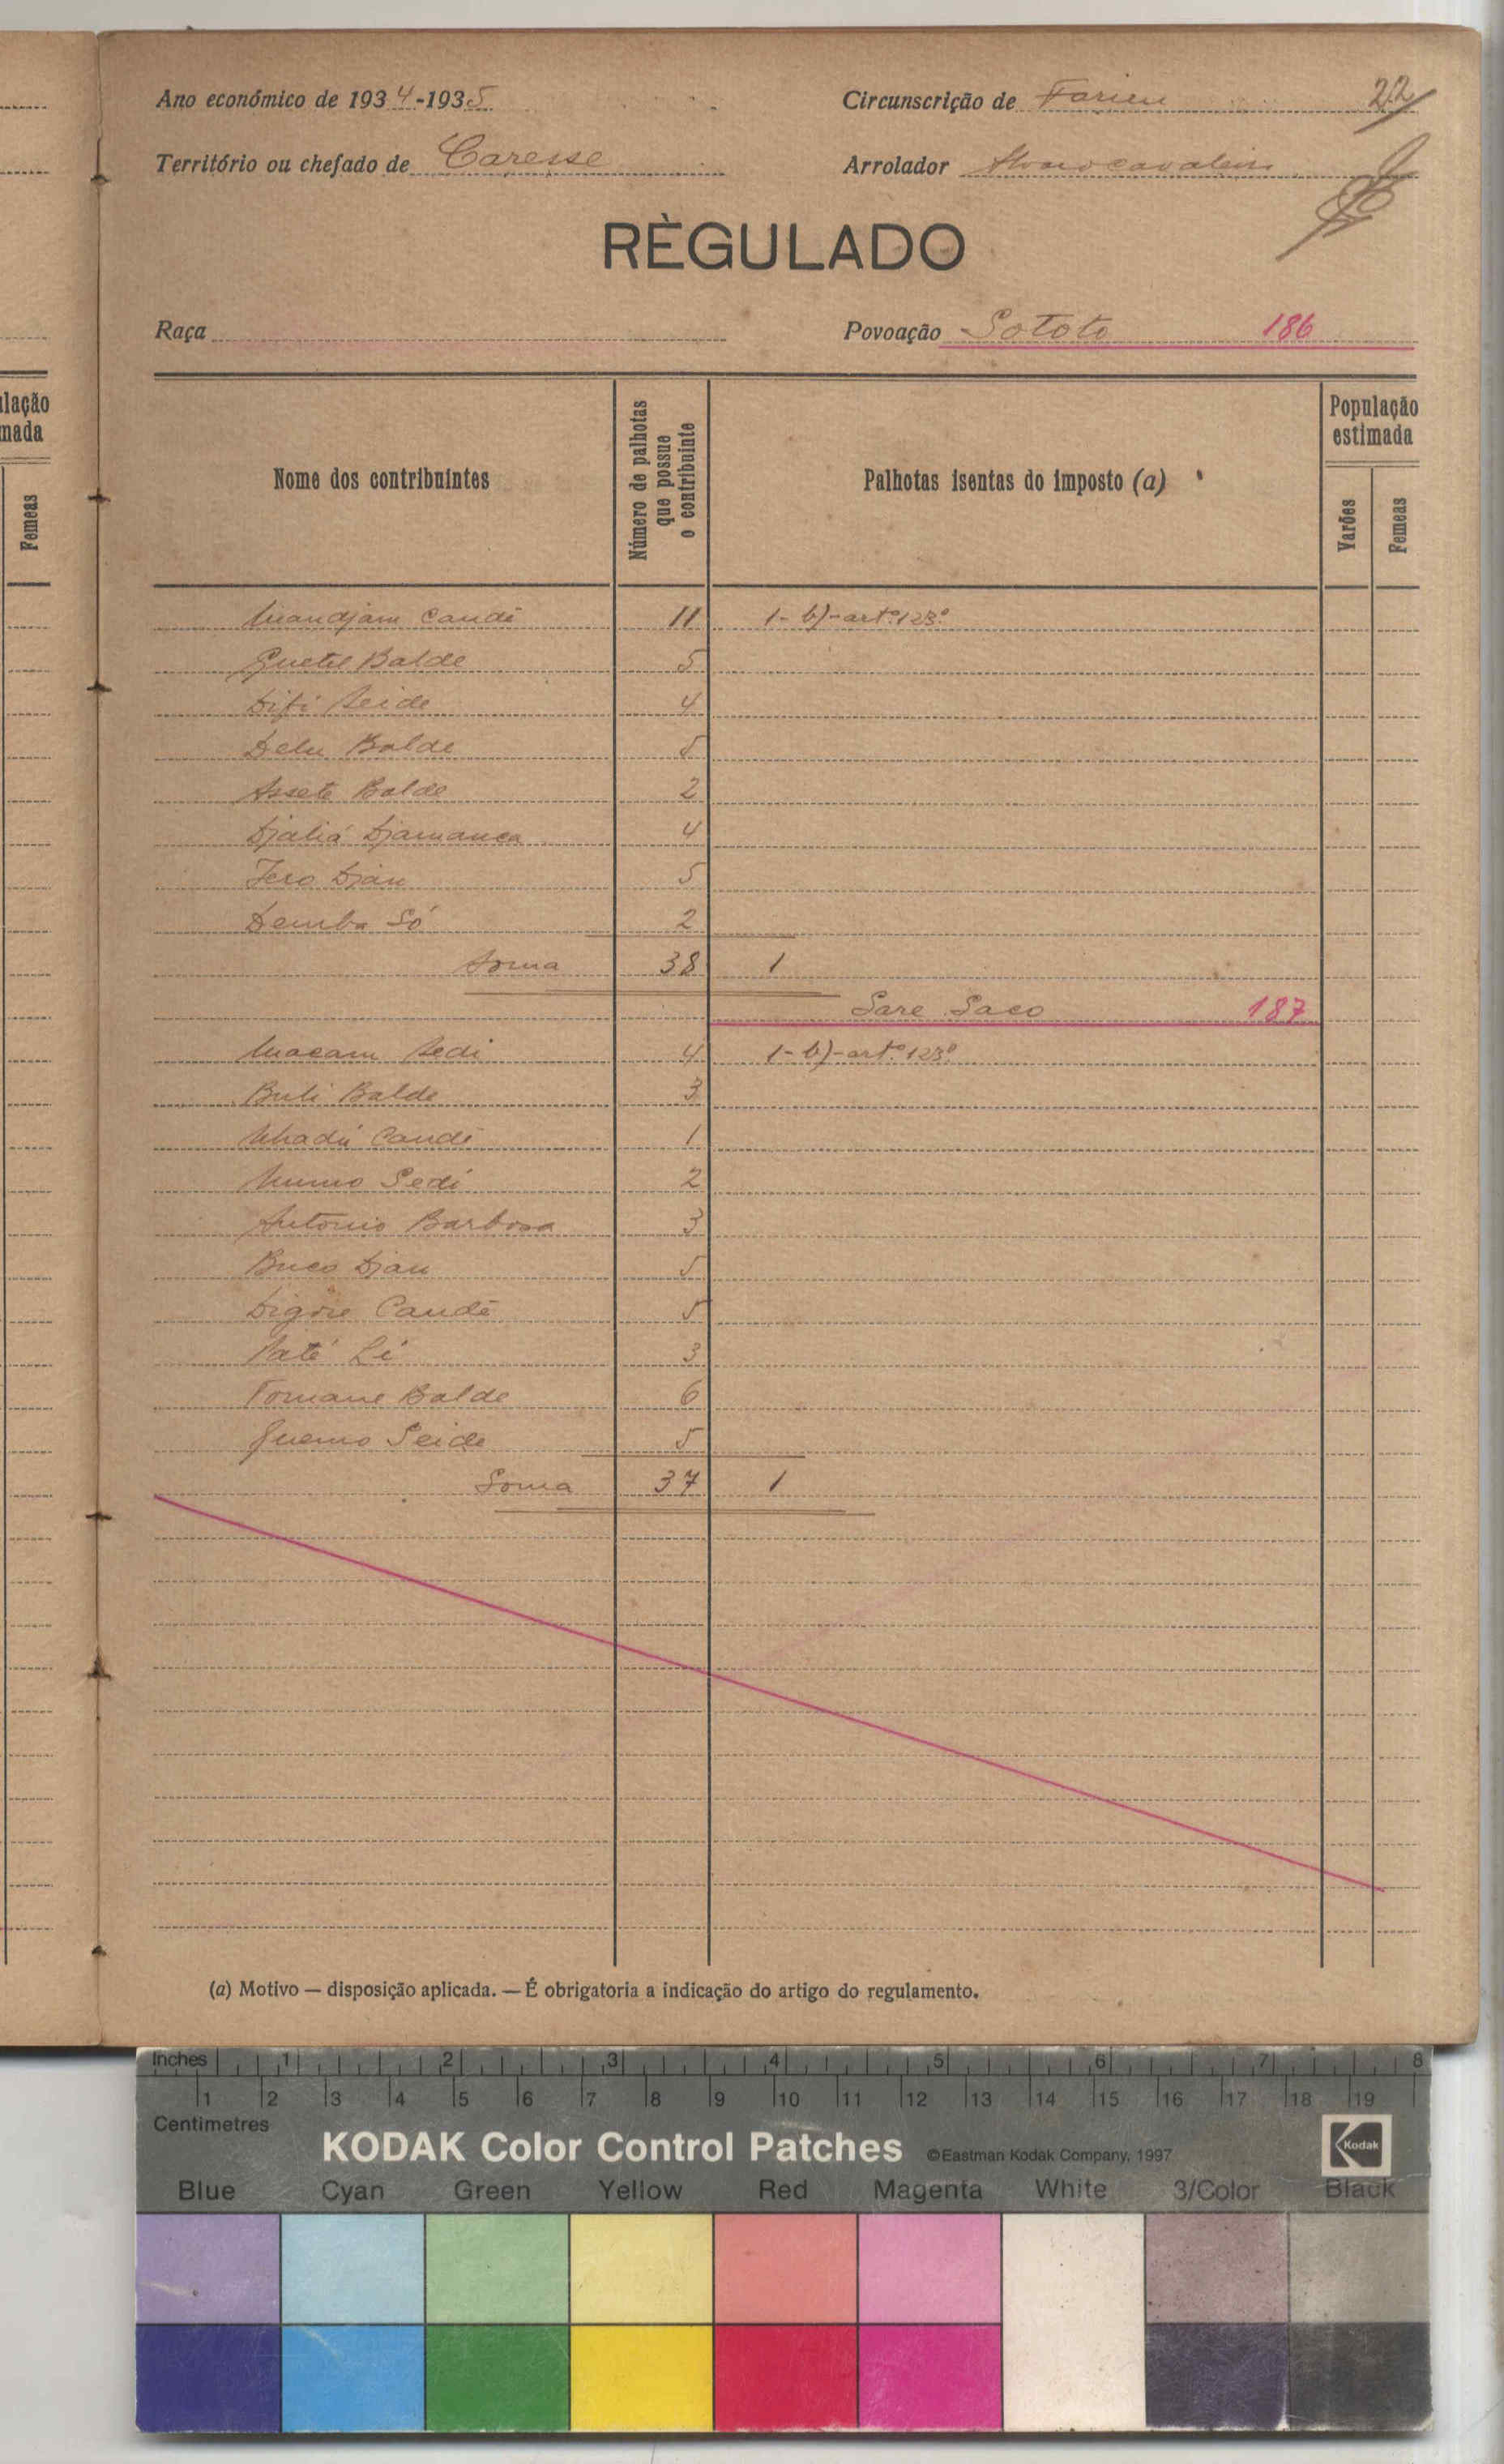 Ano económico de 1934-1935
Circunscrição de Farim
22
Território ou chefado de Caresse
Arrolador
RÈGULADO
Raça
Povoação Sototo 186
Nome dos contribuintes
Número de palhotas que possue o contribuinte
Palhotas isentas do imposto (a)
População estimada
Varões
Femeas
lação
mada
Femeas
Mandjam Candé 11 1- b)-artº 123º
Guetel Balde 5
Difi Seide 4
Delu Balde 5
Assete Balde 2
Djaliá Djamanca 4
Jero Djau 5
Demba Só 2
Soma 38 1
Sare Saco 187
Macam Sedi 4 1- b)-artº 123º
Buli Balde 3
Candé 1
Sedi 2
Antonio Barbosa 3
Buco Djau 5
Candé 5
Paté Li 3
Tomane Balde 6
Guemo Seide 5
Soma 37 1
(a) Motivo — disposição aplicada. — É obrigatoria a indicação do artigo do regulamento.
Inches 1 2 3 4 5 6 7 8
1 2 3 4 5 6 7 8 9 10 11 12 13 14 15 16 17 18 19
Centimetres
KODAK Color Control Patches ©Eastman Kodak Company, 1997 Kodak
Blue Cyan Green Yellow Red Magenta White 3/Color Black